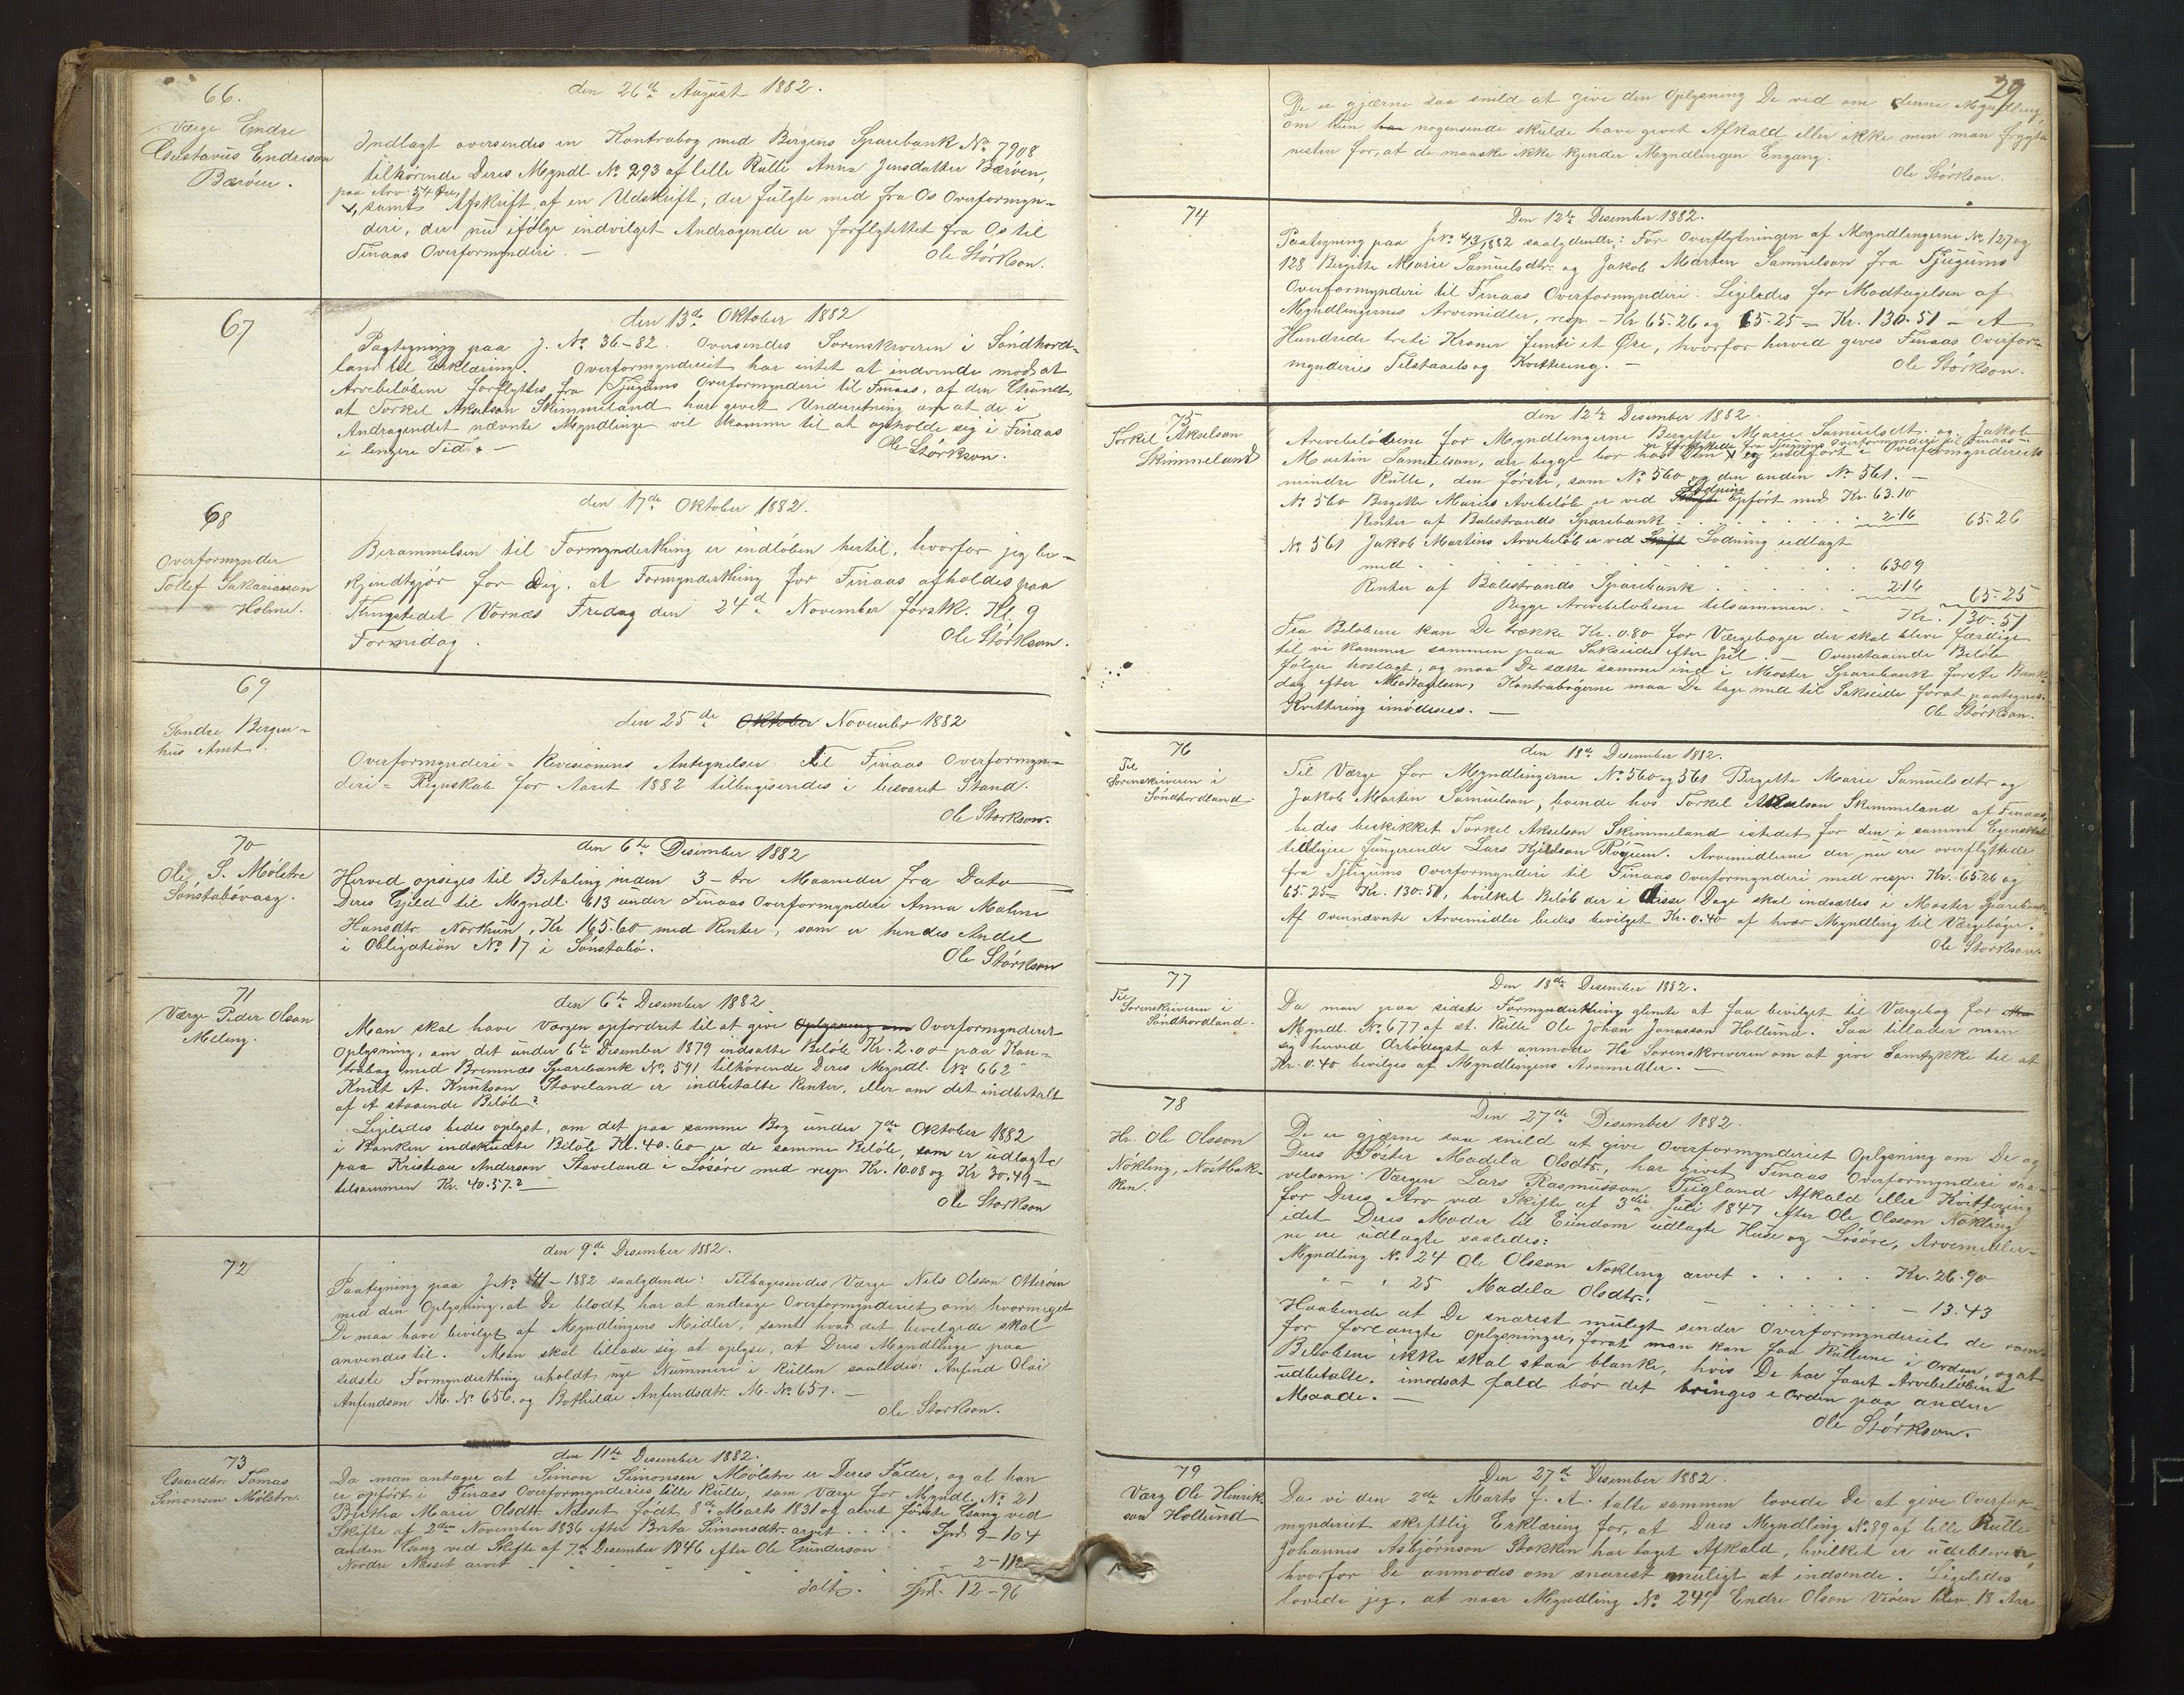 66.
Værge Endre
Gustavus Endreson
Børøen.
den 26de August 1882.
Indlagt oversendes en Kontrabog med Bergens Sparebank No 7908
tilhørende Deres Myndl. No 293 af lille Rulle Anna Jensdatter Børøen,
paa Arv 54 Øre,
x, samt Afskrift af en Udskrift, der fulgte med fra Os Overformyn-
deri, der nu ifølge indvilget Andragende er forflyttet fra Os til
Finaas Overformynderi. —
Ole Størkson.
67
den 13de Oktober 1882
Paategning paa J. No 36-82. Oversendes Sorenskriveren i Søndhord-
land til Erklæring. Overformynderiet har intet at indvende mod at
Arvebeløbene forflyttes fra Tjugums Overformynderi til Finaas, af den Grund,
at Torkel Akselson Skimmeland har givet Underretning om at de i
Andragendet nævnte Myndlinge vil komme til at opholde sig i Finaas
i længere Tid. —
Ole Størkson.
68
Overformynder
Tollef Sakariasson
Holme.
den 17de Oktober 1882.
Berammelsen til Formynderthing er indløben hertil, hvorfor jeg be-
kjendtgjør for Dig, at Formynderthing for Finaas afholdes paa
Thingstedet Vornæs Fredag den 24de November førstk. Kl. 9
Formidag.
Ole Størkson.
69
Søndre Bergen-
hus Amt.
den 25de Oktober November 1882
Overformynderi-Revisionens Antegnelser til Finaas Overformyn-
deri-Regnskab for Aaret 1882 tilbagesendes i besvaret Stand.
Ole Størkson.
70
Ole S. Mølstre
Sønstabøvaag.
den 6te Desember 1882
Herved opsiges til Betaling inden 3-tre Maaneder fra Dato
Deres Gjeld til Myndl. 613 under Finaas Overformynderi Anna Maline
Hansdtr. Northun, Kr 165.60 med Renter, som er hendes Andel
i Obligation No 17 i Sønstabø.
Ole Størkson
71
Værge Peder Olson
Meling.
den 6te Desember 1882
Man skal have Værgen opfordret til at give Oplysning om Overformynderiet
Oplysning, om det under 6te Desember 1879 indsatte Beløb Kr. 2.00 paa Kon-
trabog med Bremnæs Sparebank No 591 tilhørende Deres Myndl. No 662
Knut A. Knutson Staveland er indbetalte Renter, eller om det indbetalt
af et staaende Beløb?
Ligeledes bedes oplyst, om det paa samme Bog under 7de Oktober 1882
i Banken indskudte Beløb Kr. 40.60 er de samme Beløb, som er udlagte
paa Kristian Anderson Staveland i Løsøre med resp. Kr. 10.08 og Kr 30.49 =
tilsammen Kr. 40.57.? —
Ole Størkson
72
den 9de Desember 1882.
Paategning paa J No 41-1882 saalydende: Tilbagesendes Værge Nels Olsson Otterøen
med den Oplysning, at De blodt har at andrage Overformynderiet om hvormeget
De maa have bevilget af Myndlingens Midler, samt hvad det bevilgede skal
anvendes til. Man skal tillade sig at oplyse, at Deres Myndlinge paa
sidste Formynderthing erholdt nye Nummere i Rullen saaledes: Anfind Olai
Anfindson M. No 656. og Bothilde Anfindsdtr. M. No 657. —
Ole Størkson.
73
Gaardbr. Tomas
Simonsen Mølstre.
den 11te Desember 1882.
Da man antager at Simon Simonsen Mølstre er Deres Fader, og at han
er opført i Finaas Overformynderies lille Rulle, som Værge for Myndl. No 21
Birtha Marie Olsdtr. Næsset, født 8de Marts 1831 og arvet første Gang ved
Skifte af 2den November 1836 efter Brita Simonsdtr. arvet . . . . Spd. 9-104
anden Gang ved Skifte af 7de Desember 1846 efter Ole Gunderson
Nordre Næset arvet . . . . . . . . - 2-112
Ialt. Spd. 12-96
29
De er gjærne saa snild at give den Oplysning De ved om denne Myndling,
om hun har nogensinde skulde have givet Afkald eller ikke men man frygter
nesten for, at de maaske ikke kjender Myndlingen Engang.
Ole Størkson.
74
Den 12te Desember 1882.
Paategning paa J.No 43/1882 saalydende: For Overflytningen af Myndlingerne No 127 og
128 Bergitte Marie Samuelsdtr. og Jakob Martin Samuelson fra Tjugums
Overformynderi til Finaas Overformynderi. Ligeledes for Modtagelsen af
Myndlingernes Arvemidler, resp. - Kr 65.26 og 65.25 = Kr. 130.51 — Et
Hundrede treti Kroner femti et Øre, hvorfor herved gives Finaas Overfor-
mynderies Tilstaaels og Kvittering. —
Ole Størkson.
75
Torkel Akselson
Skimmeland
den 12te Desember 1882.
Arvebeløbene for Myndlingerne Bergitte Marie Samuelsdt. og Jakob
er forflyttede fra Tjugums Overformynderi til Finaas
Martin Samuelson, der begge bor hos Dem x og indført i Overformynderiets
mindre Rulle, den første, som No 560 og den anden No 561. —
No 560 Bergitte Maries Arvebeløb er ved Skifte Lodning opført med Kr. 63.10
Renter af Balestrands Sparebank . . . . . . 2.16 65.26
No 561 Jakob Martins Arvebeløb er ved Skift Lodning udlagt
med . . . . . . . . . . 63.09
Renter af Balestrands Sparebank . . . . . 2.16 65.25
Begge Arvebeløbene tilsammen . Kr. 130.51
Fra Beløbene kan De trække Kr. 0.80 for Værgebøger der skal blive færdige
til vi kommer sammen paa Sakseide efter Jul. — Ovenstaaende Beløb
følger hoslagt, og maa De sætte samme ind i Moster Sparebank første Bank-
dag efter Modtagelsen, Kontrabøgerne maa De tage med til Sakseide forat paategnes.
Kvittering imødesees. —
Ole Størkson.
76
Til
Sorenskriveren i
Søndhordland.
den 18de Desember 1882.
Til Værge for Myndlingerne No 560 og 561 Bergette Marie Samuelsdtr og
Jakob Martin Samuelson, boende hos Torkel Akselson Skimmeland af Finaas,
bedes beskikket Torkel Akselson Skimmeland istedet for den i samme Egenskab
tidligere fungerende Lars Kjelson Røyrum. Arvemidlerne der nu ere overflyttede
fra Tjugums Overformynderi til Finaas Overformynderi med resp. Kr. 65.26 og
65.25 = Kr. 130.51, hvilket Beløb der i disse Dage skal indsættes i Moster Sparebank.
Af Ovennævnte Arvemidler bedes bevilget Kr. 0.40 af hver Myndling til Værgebøger.
Ole Størkson.
77
Til
Sorenskriveren i
Søndhordland.
Den 18de Desember 1882.
Da man paa sidste Formynderthing glemte at faa bevilget til Værgebog for
Myndl. No 677 af st. Rulle Ole Johan Jonasson Hollund. Saa tillader man
sig herved Ærbødigst at anmode Hr Sorenskriveren om at give Samtykke til at
Kr. 0.40 bevilges af Myndlingens Arvemidler. —
78
Hr. Ole Olsson
Nøkling, Nøstbak-
ken.
Den 27de Desember 1882.
De er gjærne saa snild at give Overformynderiet Oplysning om De og
Deres Søster Madela Olsdtr., har givet Finaas Overformynderi saa-
velsom Værgen Lars Rasmusson Teigland Afkald eller Kvittering
for Deres Arv ved Skifte af 3die Juli 1847 efter Ole Olsson Nøkling
idet Deres Moder til Eiendom udlagte Huse og Løsøre, Arvemidler-
ne ere udlagte saaledes:
Myndling No 24 Ole Olsson Nøkling arvet . . . . . Kr. 26.90
" — " 25 Madela Olsdtr. — . . . . . — 13.43
Haabende at De snarest muligt sender Overformynderiet de oven-
for forlangte Oplysninger, forat man kan faa Rullerne i Orden, og at
Beløbene ikke skal staa blanke, hvis De har faaet Arvebeløbene
udbetalte. imodsat fald bør det bringes i Orden paa anden
Maade. —
Ole Størkson.
79
Værg Ole Henrik-
son Hollund
Den 27de Desember 1882.
Da vi den 2de Marts f. A. talte sammen lovede De at give Overfor-
mynderiet skriftlig Erklæring for, at Deres Myndling No 89 af lille Rulle
Johannes Asbjørnson Stokken har taget Afkald, hvilket er udebleven,
hvorfor De anmodes om snarest muligt at indsende. Ligeledes
lovede jeg, at naar Myndling No 249 Endre Olson Vrøen blev 18 Aar